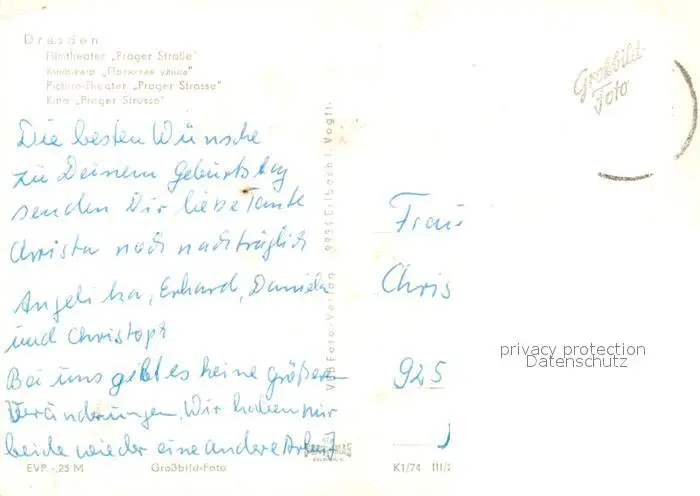 Dresden
Filmtheater „Prager Straße"
Кинотеатр „Пражская улица"
Picture-Theater „Prager Strasse"
Kino „Prager Strasse"
Großbild-
Foto
Die besten Wünsche
zu Deinem Geburtstag
senden Dir liebe Tante
Christa noch nachträglich
Angelika, Erhard, Daniela
und Christoph
Bei uns gibt es keine größeren
Veränderungen. Wir haben nur
beide wieder eine andere Arbeit
Frau
Chris
925
VEB Foto-Verlag 9931 Erlbach i. Vogtl.
privacy protection
Datenschutz
EVP -,25 M
Großbild-Foto
K1/74 III/